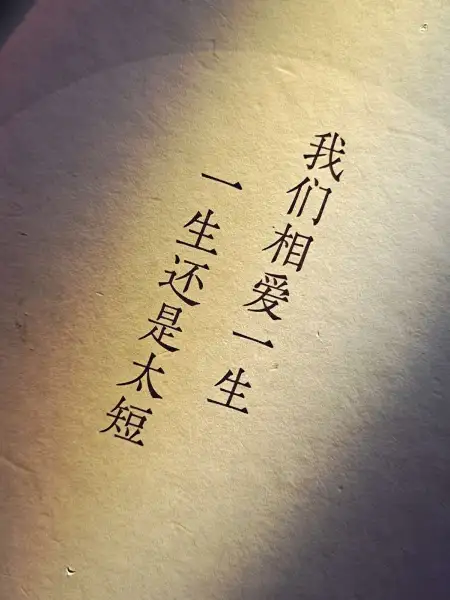 我们相爱一生
一生还是太短